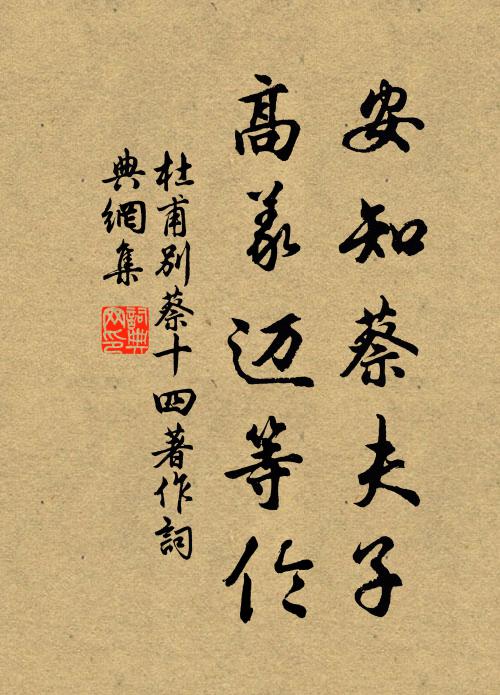 安知蔡夫子
高義迈等伦
杜甫別蔡十四著作詞
典網集
詞典
网印